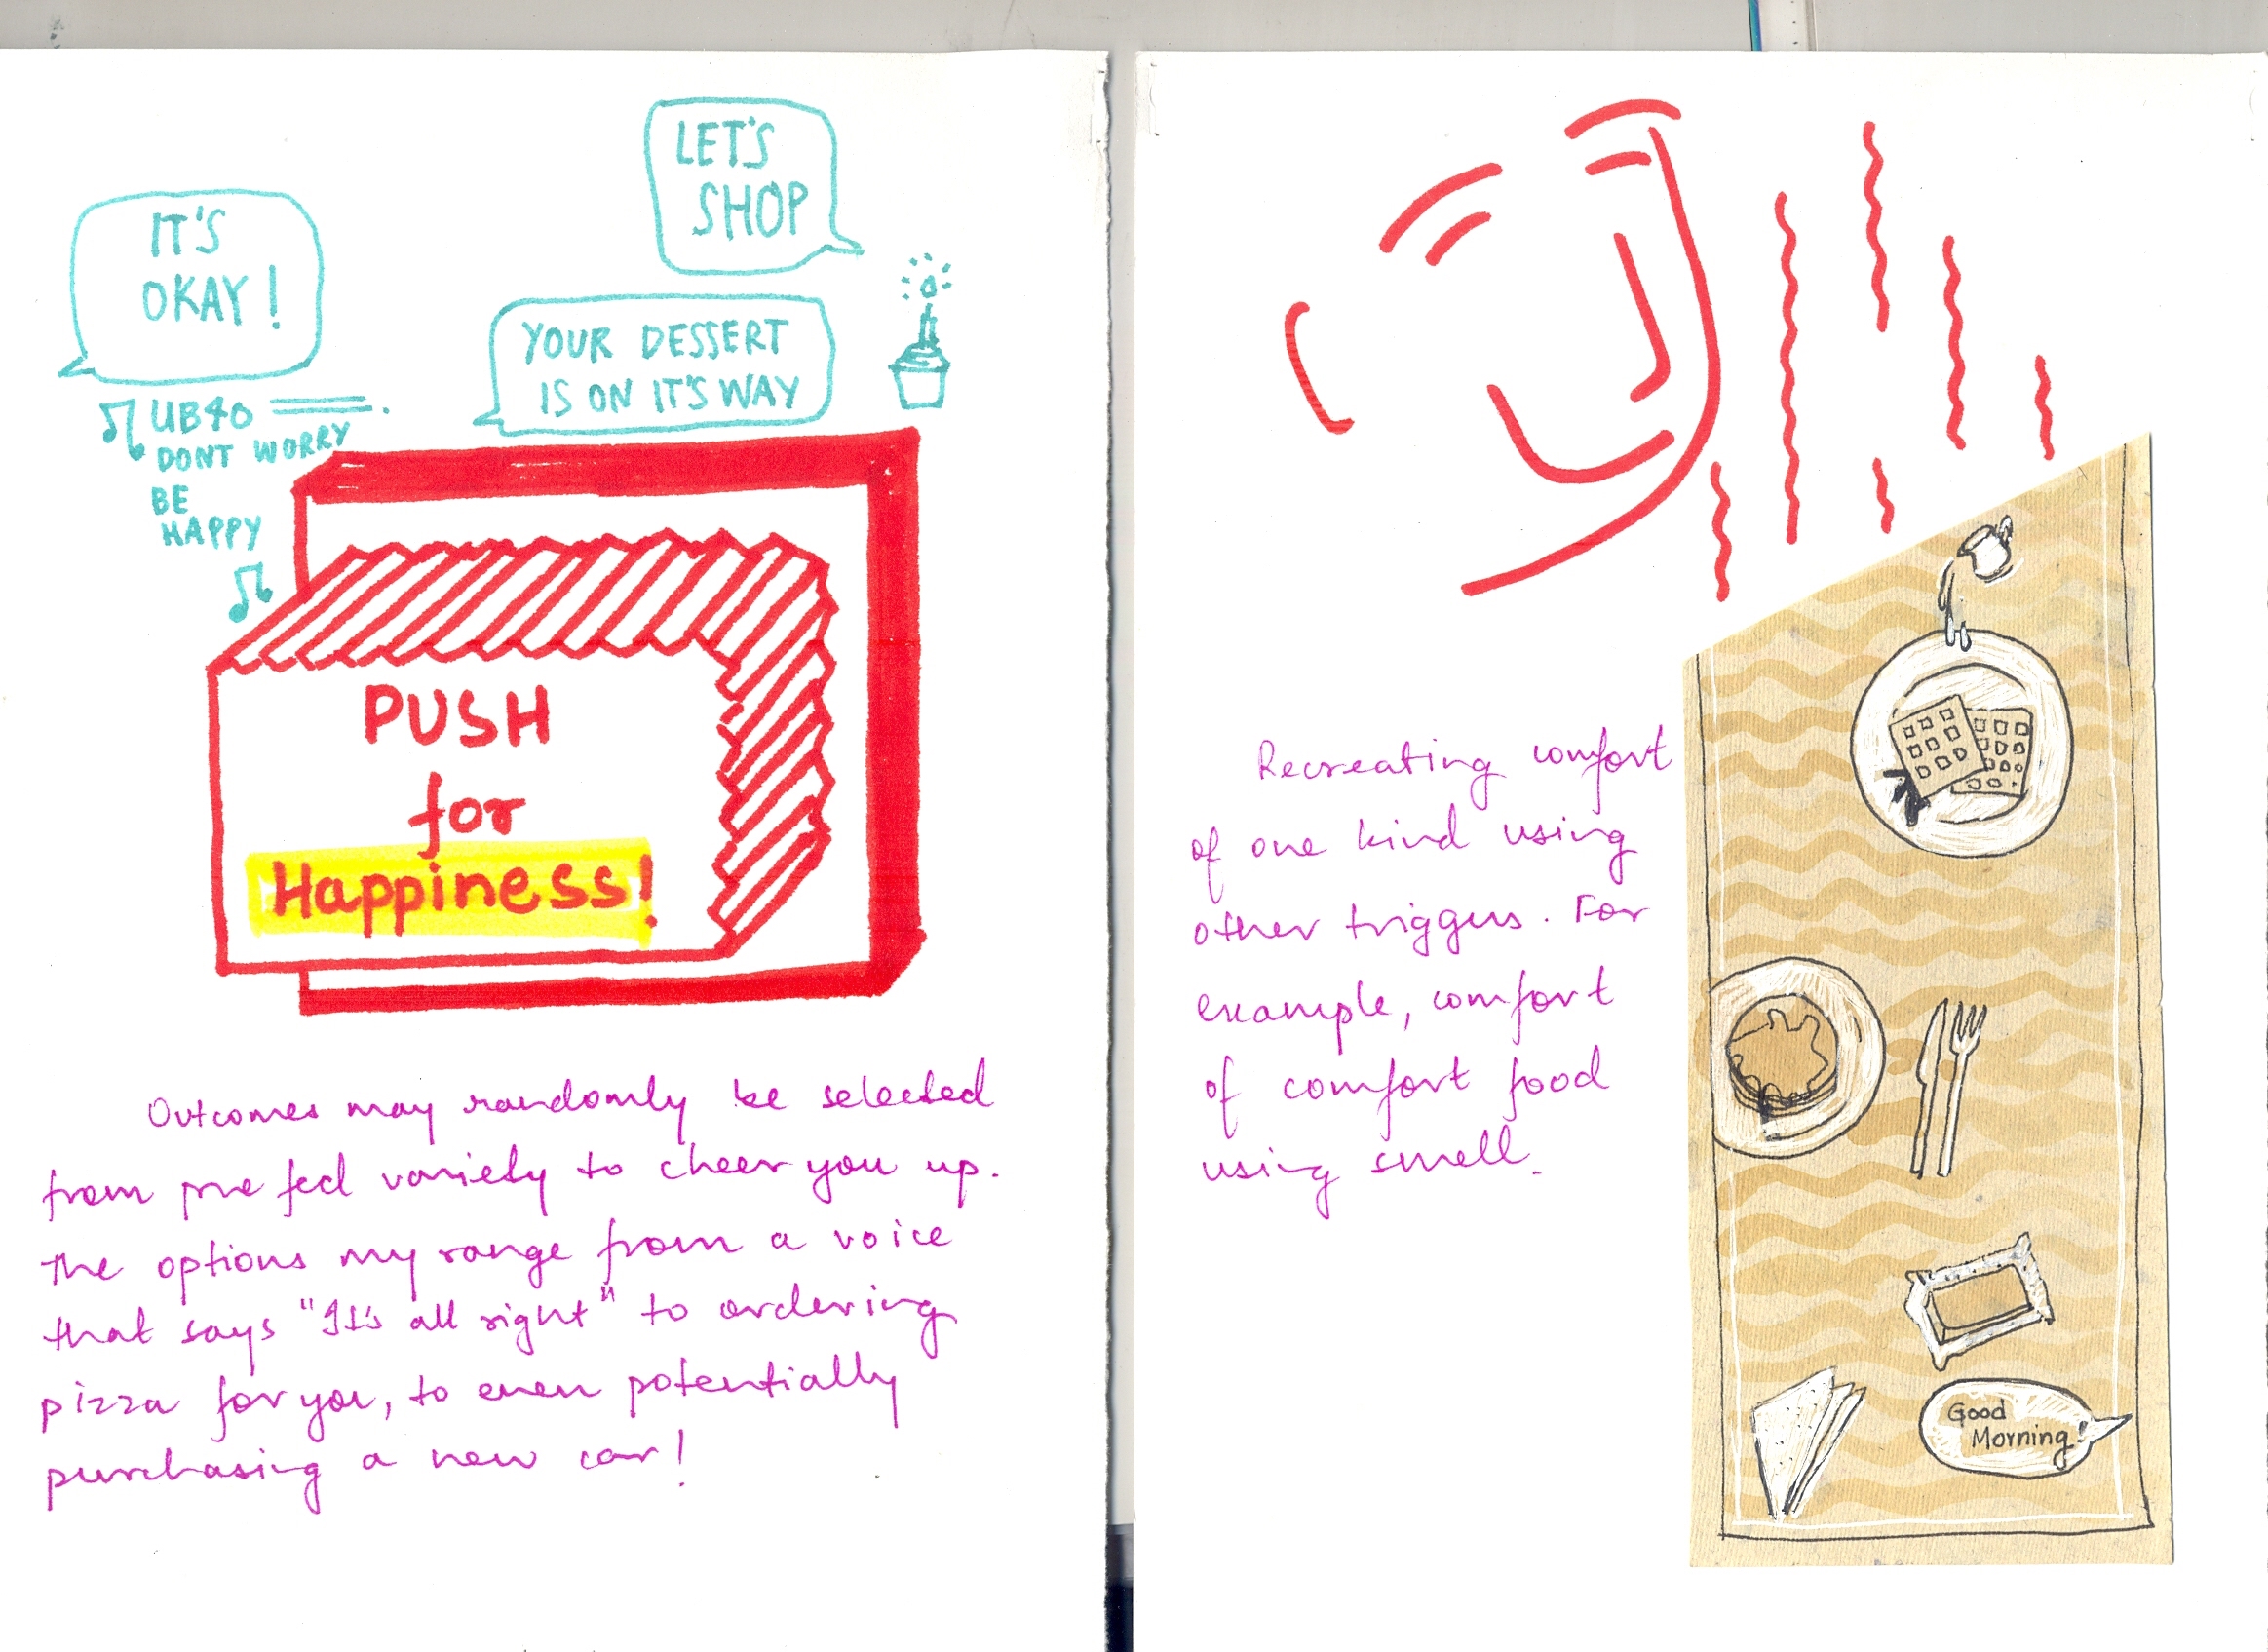 LET'S
SHOP
IT'S
OKAY!
YOUR DESSERT
IS ON IT'S WAY
UB40
DONT WORRY
BE
HAPPY
PUSH
for
Happiness!
Outcomes may randomly be selected
from pre fed variety to cheer you up.
The options my range from a voice
that says "It's all right" to ordering
pizza for you, to even potentially
purchasing a new car!
Recreating comfort
of one kind using
other triggers. For
example, comfort
of comfort food
using smell.
Good
Morning!